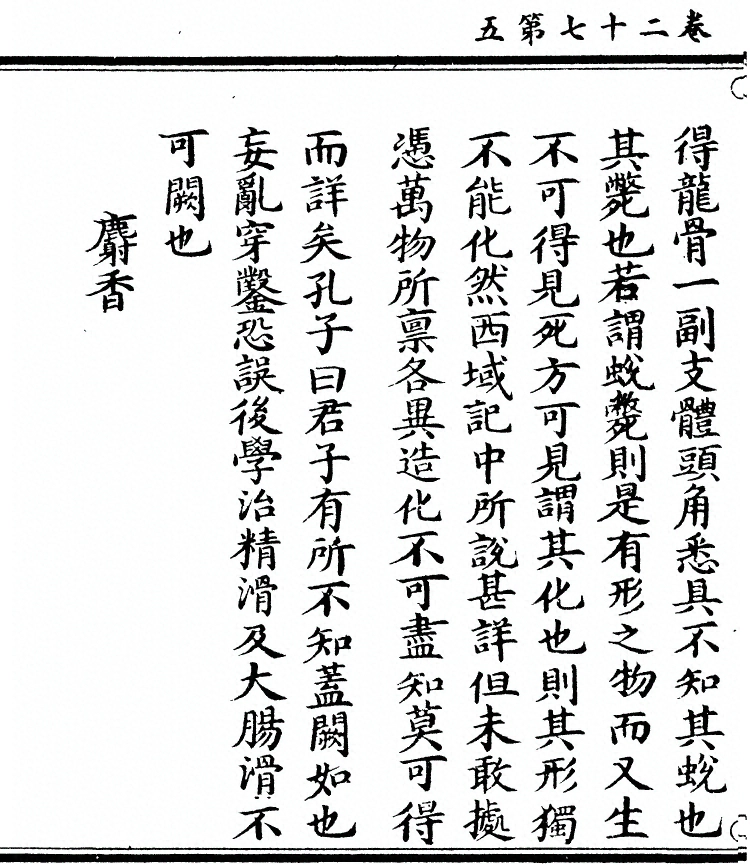 卷二十七第五
得龍骨一副支體頭角悉具不知其蛻也
其斃也若謂蛻斃則是有形之物而又生
不可得見死方可見謂其化也則其形獨
不能化然西域記中所說甚詳但未敢據
憑萬物所稟各異造化不可盡知莫可得
而詳矣孔子曰君子有所不知蓋闕如也
妄亂穿鑿恐誤後學治精滑及大腸滑不
可闕也
麝香